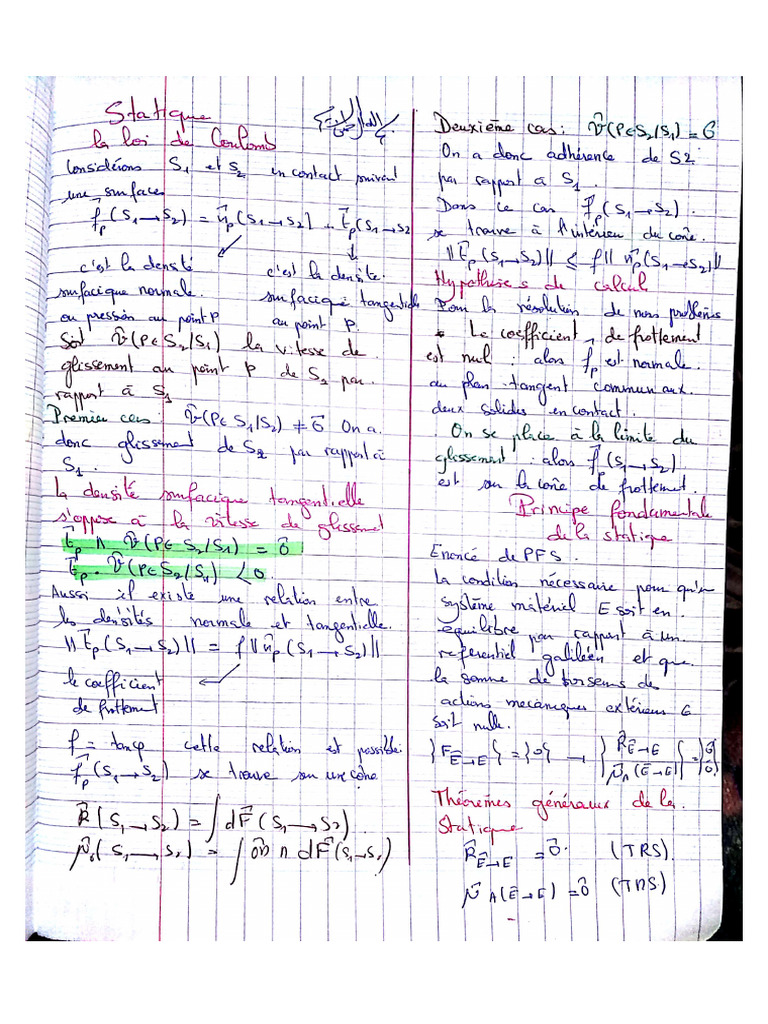 Statique
la loi de Coulomb
Considérons S₁ et S₂ en contact suivant
une surface
f⃗p(S₁→S₂) = n⃗p(S₁→S₂) + t⃗p(S₁→S₂
c'est la densité c'est la densité.
surfacique normale. surfacique tangentielle
ou pression au point P au point P.
Soit v⃗(P∈S₂/S₁) la vitesse de
glissement au point P de S₂ par.
rapport à S₁
Premier cas: v⃗(P∈S₂/S₁) ≠ 0⃗ On a.
donc glissement de S₂ par rapport à
S₁.
la densité surfacique tangentielle
s'oppose à la vitesse de glissement
t⃗p ∧ v⃗(P∈S₂/S₁) = 0⃗
t⃗p . v⃗(P∈S₂/S₁) < 0.
Aussi il existe une relation entre
les densités normale et tangentielle.
||t⃗p(S₁→S₂)|| = f||n⃗p(S₁→S₂)||
le coefficient
de frottement
f = tanφ cette relation est possible
f⃗p(S₁→S₂) se trouve sur un cône
R⃗(S₁→S₂) = ∫dF⃗(S₁→S₂)
∧ dF⃗(S₁→S₂)
Deuxième cas: v⃗(P∈S₂/S₁) = 0⃗
On a donc adhérence de S2
par rapport à S₁.
Dans ce cas f⃗p(S₁→S₂).
se trouve à l'intérieur du cône.
||t⃗p(S₁→S₂)|| ≤ f||n⃗p(S₁→S₂)||
Hypothèses de calcul
Pour la résolution de nos problèmes
* Le coefficient de frottement
est nul: alors f⃗p est normale.
au plan tangent commun aux.
deux solides en contact.
. On se place à la limite du
glissement: alors f⃗p(S₁→S₂)
est sur le cône de frottement.
Principe fondamentale
de la statique
Enoncé de PFS.
la condition nécessaire pour qu'un
système matériel E soit en.
équilibre par rapport à un.
referentiel galiléen et que
la somme de torseurs des
actions mecaniques extérieurs
soit nulle.
{F Ē→E} = {0} → {R⃗ Ē→E M⃗A(Ē→E)} = {0⃗ 0⃗}
Théorèmes généraux de la.
statique
R⃗ Ē→E = 0⃗. (TRS).
M⃗A(Ē→E) = 0⃗ (TMS)